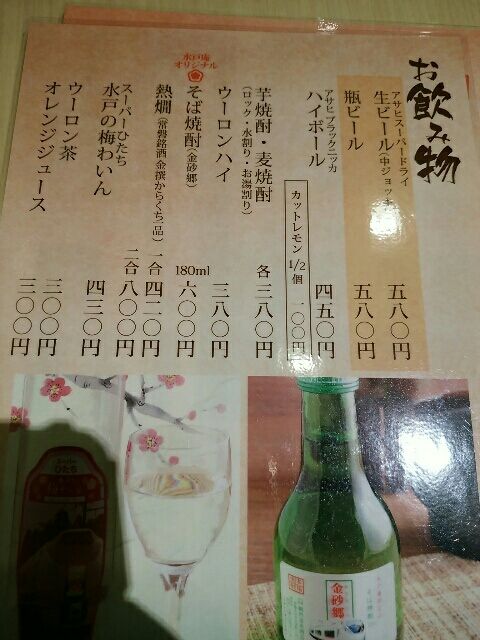 お飲み物
アサヒスーパードライ
生ビール(中ジョッキ)
五八〇円
瓶ビール
五八〇円
アサヒ ブラックニッカ
ハイボール
四五〇円
カットレモン 1/2個 一〇〇円
芋焼酎・麦焼酎
(ロック・水割り・お湯割り)
各三八〇円
ウーロンハイ
三八〇円
水戸庵
オリジナル
そば焼酎(金砂郷)
180ml
六〇〇円
熱燗(常磐銘酒金撰からくち一品)
一合 四二〇円
二合 八〇〇円
スーパーひたち
水戸の梅わいん
四三〇円
ウーロン茶
三〇〇円
オレンジジュース
三〇〇円
スーパー
ひたち
金砂郷